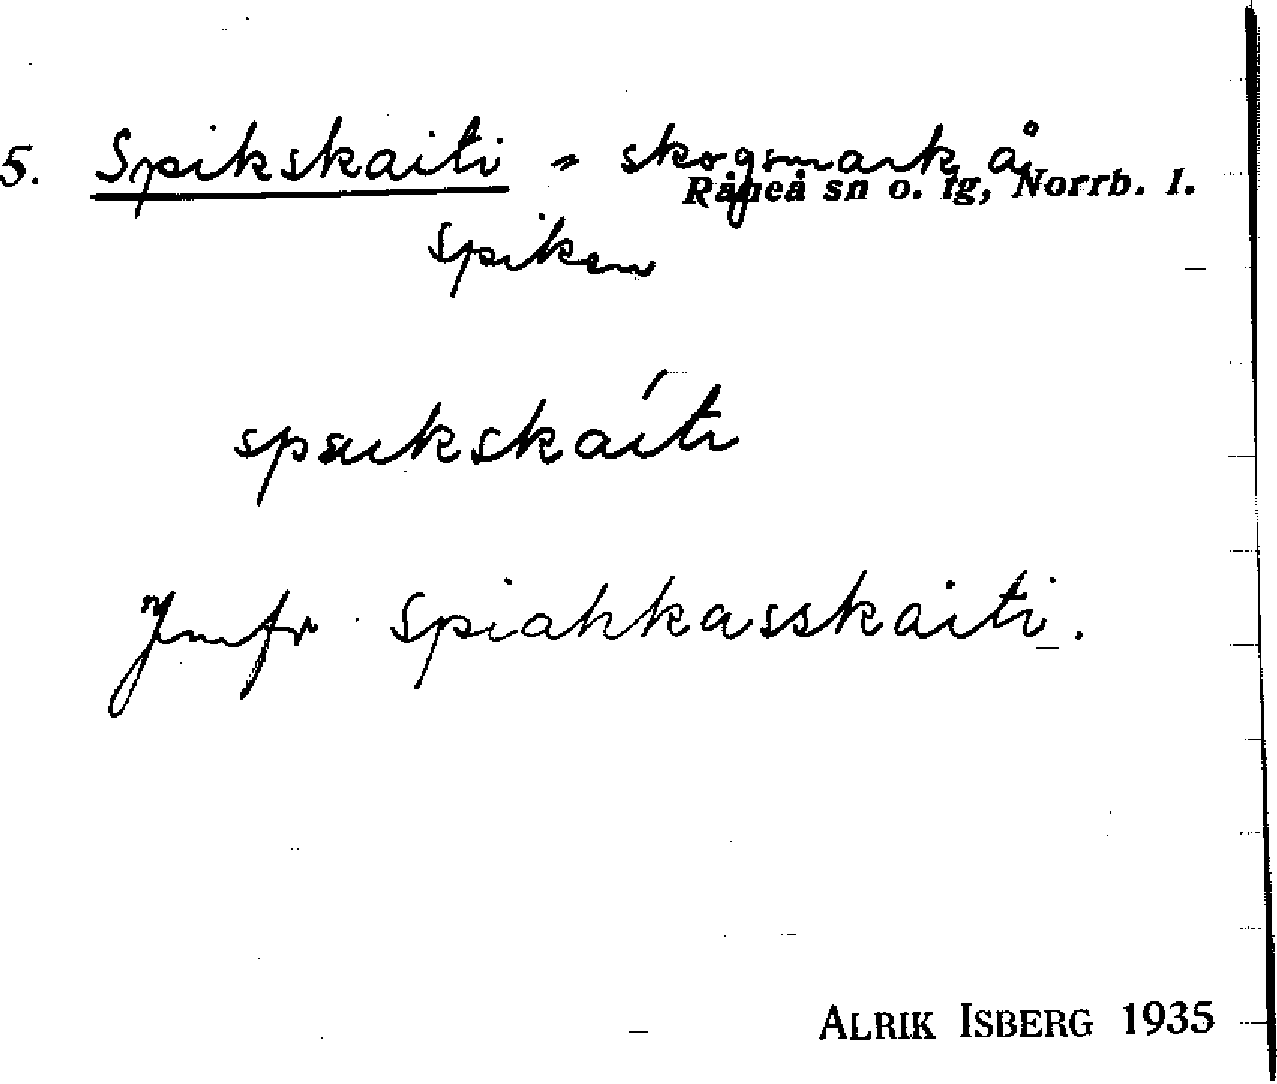 5. Spikskaiti = skogsmark å
Råneå sn o. tg, Norrb. l.
Spiken
spæikskáiti
Jmfr Spiahkasskaiti.
ALRIK ISBERG 1935